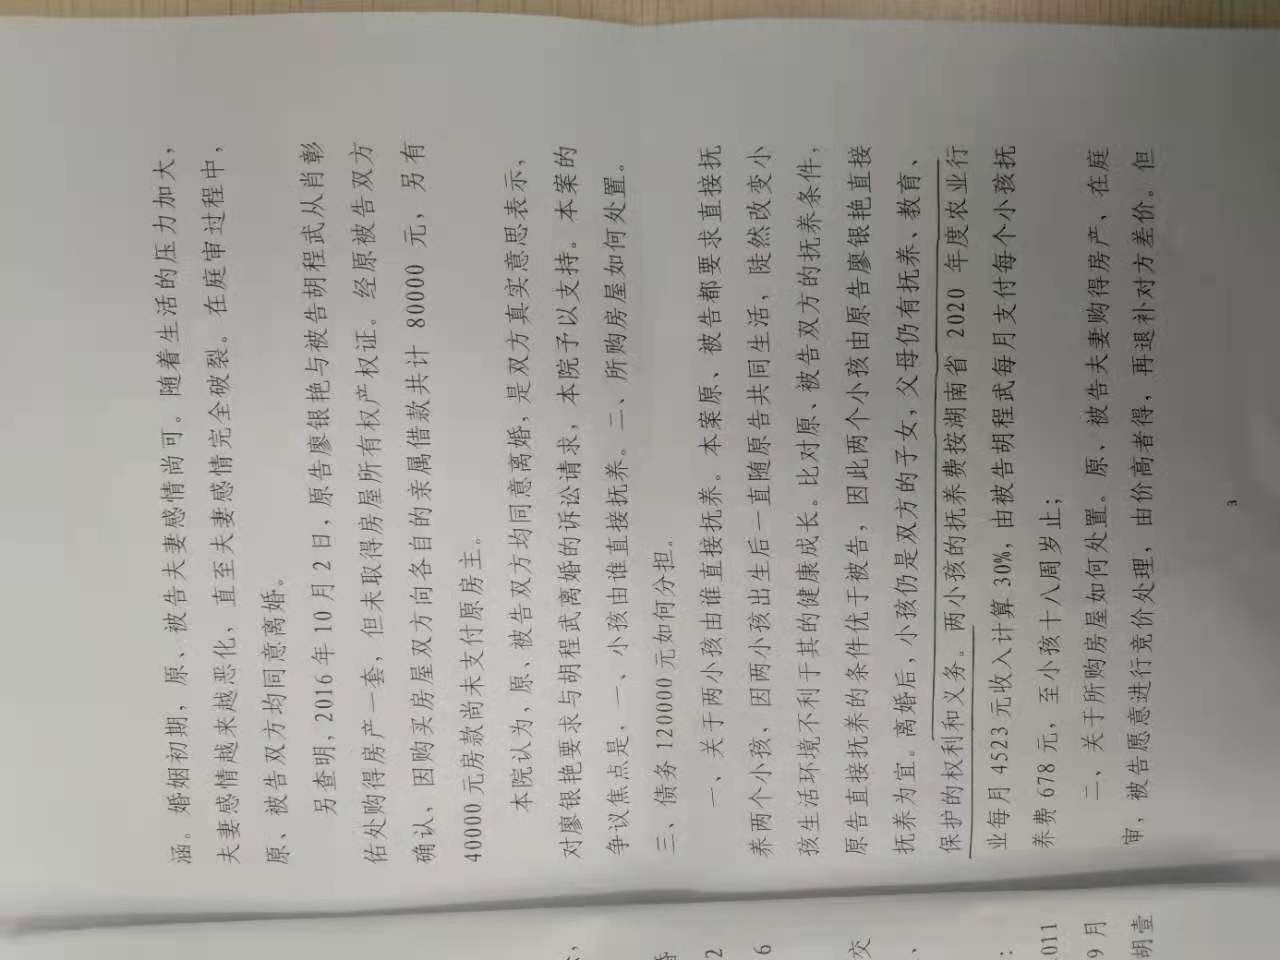 涵。婚姻初期，原、被告夫妻感情尚可。随着生活的压力加大，
夫妻感情越来越恶化，直至夫妻感情完全破裂。在庭审过程中，
原、被告双方均同意离婚。
另查明，2016年10月2日，原告廖银艳与被告胡程武从肖彰
佑处购得房产一套，但未取得房屋所有权证。经原被告双方
确认、因购买房屋双方向各自的亲属借款共计 80000 元，另有
40000元房款尚未支付原房主。
本院认为，原、被告双方均同意离婚，是双方真实意思表示，
对廖银艳要求与胡程武离婚的诉讼请求，本院予以支持。本案的
争议焦点是，一、小孩由谁直接抚养。二、所购房屋如何处置。
三、债务120000元如何分担。
一、关于两小孩由谁直接抚养。本案原、被告都要求直接抚
养两个小孩，因两小孩出生后一直随原告共同生活，陡然改变小
孩生活环境不利于其的健康成长。比对原、被告双方的抚养条件，
原告直接抚养的条件优于被告，因此两个小孩由原告廖银艳直接
抚养为宜。离婚后，小孩仍是双方的子女，父母仍有抚养、教育、
保护的权利和义务。两小孩的抚养费按湖南省 2020 年度农业行
业每月4523元收入计算30%，由被告胡程武每月支付每个小孩抚
养费678元，至小孩十八周岁止；
二、关于所购房屋如何处置。原、被告夫妻购得房产、在庭
审，被告愿意进行竞价处理，由价高者得，再退补对方差价。但
3
2
6
交
、
：
011
9月
胡壹